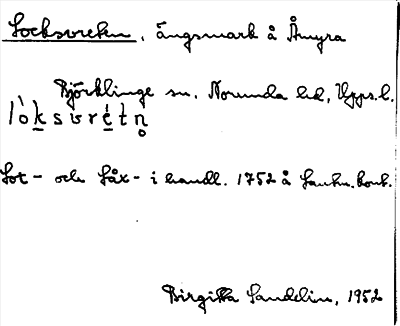 Locksvreten, ängsmark å Åmyra
Björklinge sn, Norunda hd, Upps. l.
lòksvretn̥
Lot- och Låx- i handl. 1752 å Lantm.kont.
Birgitta Sandelin, 1952